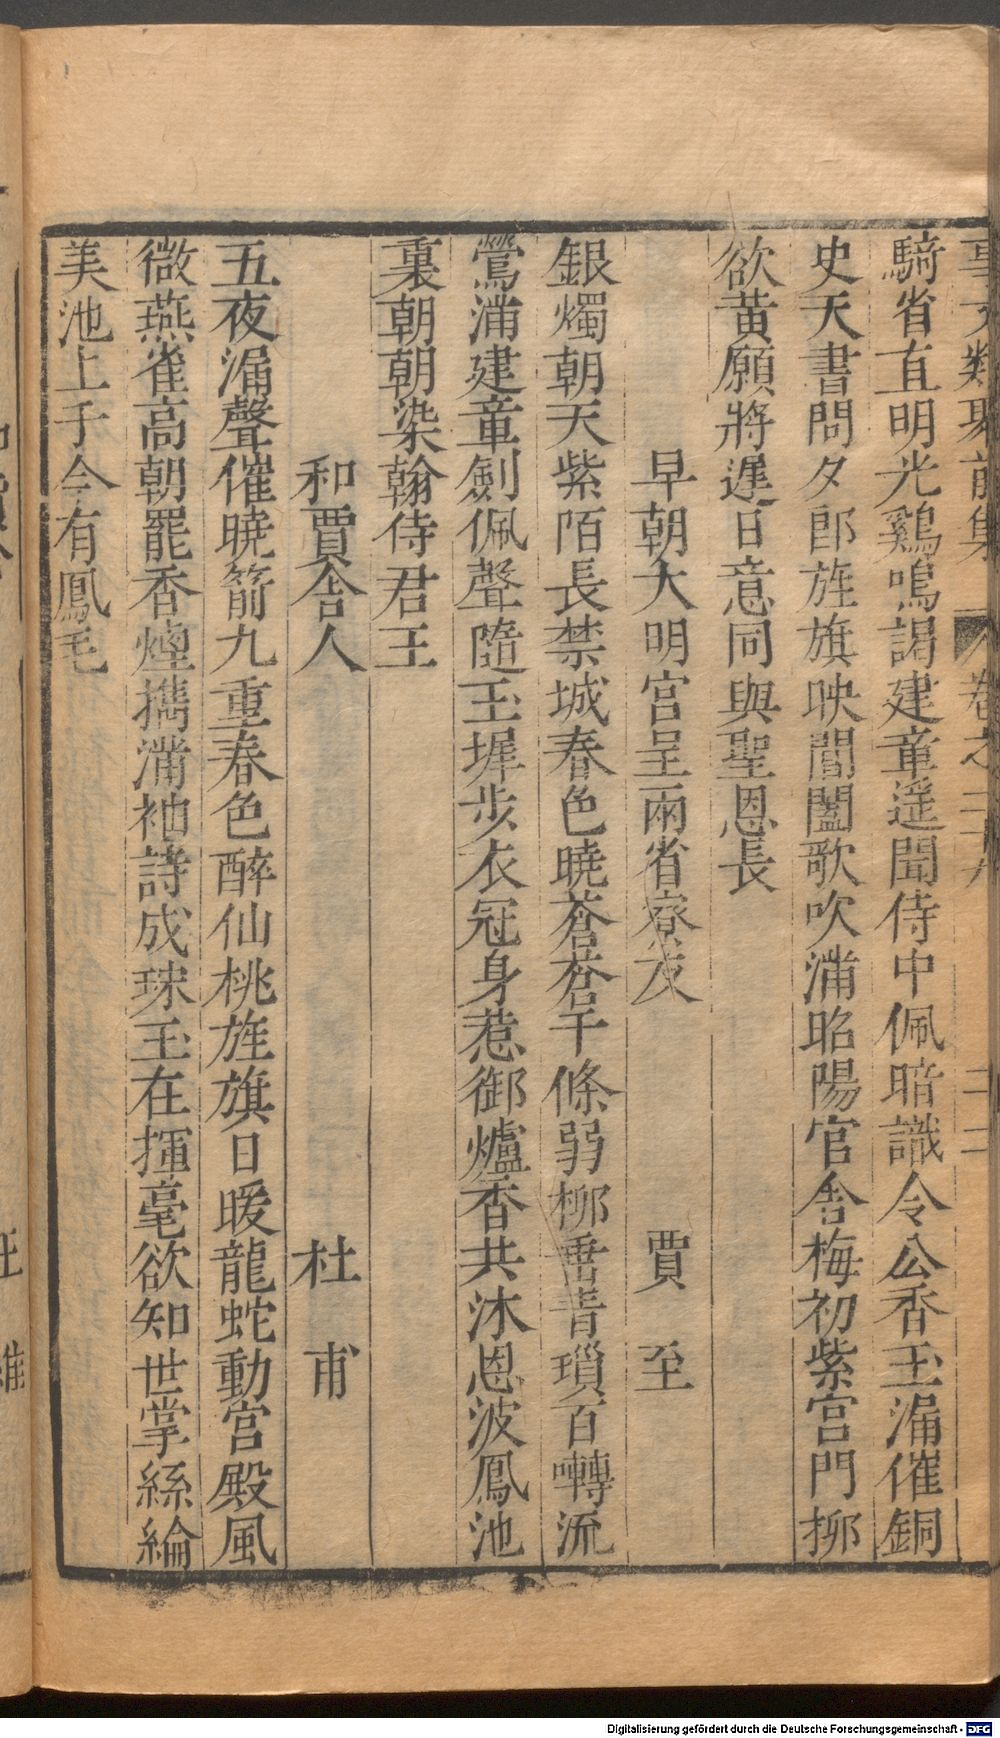 事文類聚前集 卷之二十八 二二
騎省直明光鷄鳴謁建章遥聞侍中佩暗識令公香玉漏催銅
史天書問夕郎旌旗映閶闔歌吹滿昭陽官舍梅初紫宫門柳
欲黄願將遲日意同與聖恩長
早朝大明宫呈兩省寮友 賈 至
銀燭朝天紫陌長禁城春色曉蒼蒼千條弱柳垂青瑣百囀流
鶯滿建章劍佩聲隨玉墀步衣冠身惹御爐香共沐恩波鳳池
裏朝朝染翰侍君王
和賈舍人 杜 甫
五夜漏聲催曉箭九重春色醉仙桃旌旗日暖龍蛇動宫殿風
微燕雀高朝罷香煙攜滿袖詩成珠玉在揮毫欲知世掌絲綸
美池上于今有鳳毛
維
Digitalisierung gefördert durch die Deutsche Forschungsgemeinschaft - DFG